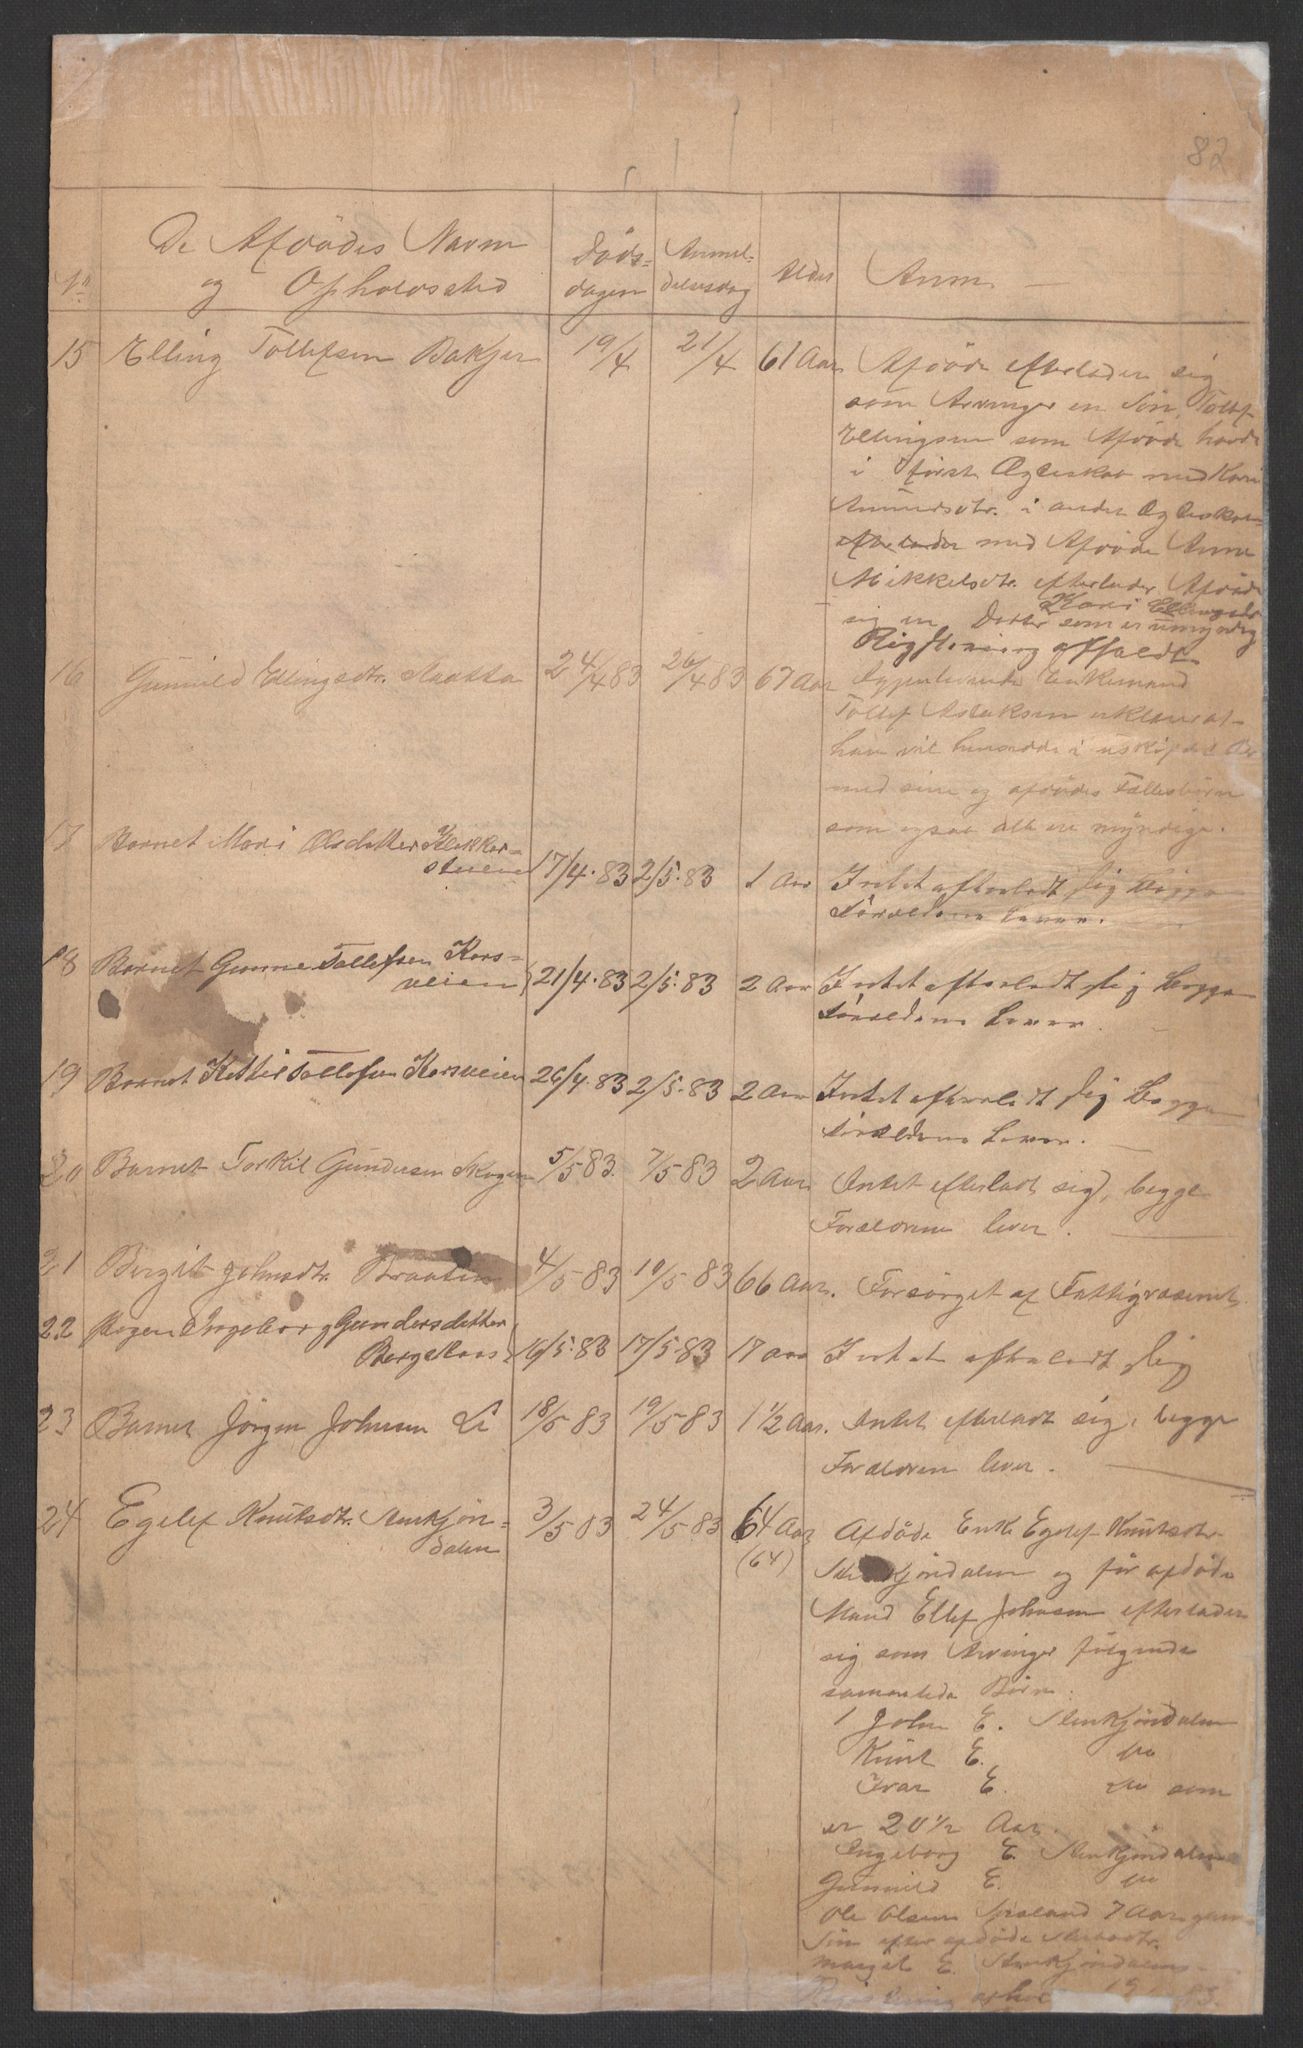 82
No
De Afdödes Navn
og Opholdssted
Döds-
dagen
Anmel-
delsesdag
Alder
Anm
15 Elling Tollefsen Bakjer 19/4 21/4 61 Aar
Afdöde efterlader sig
som Arvinger en Sön, Tollef
Ellingsen som Afdöde havde
i först Ægteskab med Kari
i andet Ægteskab
efterlader med Afdöde Anne
Mikkelsdtr. efterlader Afdöde
Kari Ellingsdr
sig en Datter som er umyndig
Rigstrering afholdt
16 Gunnild Ellingsdtr. Naatta 24/4 83 26/4 83 67 Aar
Gjenlevende Enkemand
Tollef Aslaksen erklærer at
han vil hensidde i uskiftet Bo
med sine og afdödes Fællesbörn
som ogsaa alle ere myndige.
17 Barnet Mari Olsdatter Klokker-
stuen 17/4.83 2/5.83 1 Aar Intet efterladt sig begge
Foreldrene Lever.
18 Barnet Gunne Tollefsen Kors-
veien 21/4.83 2/5.83 2 Aar Intet efterladt sig begge
Foreldrene Lever.
19 Barnet Kittil Tollefsen Korsveien 26/4.83 2/5.83 2 Aar Intet efterladt sig begge
Foreldrene Lever.
20 Barnet Torkil Gundersen Skogen 5/5 83. 7/5 83 2 Aar Intet efterladt sig, begge
Forældrene lever.
21 Bergit Johnsdtr. Braaten 4/5 83 10/5 83 66 Aar. Forsörget af Fattigvæsenet
22 Pigen Ingeborg Gundersdatter
Bergekaas 16/5.83 17/5.83 17 aar Intet efterladt sig
23 Barnet Jörgen Johnsen Li 18/5 83 19/5 83 1 1/2 Aar. Intet efterladt sig, begge
Forældrene lever.
24 Egelef Knutsdtr. Stenkjön-
dalen 3/5 83 24/5 83 64 Aar
(64)
Afdöde Enke Egelef Knutsdtr
Stenkjöndalen og för afdöde
Mand Ellef Johnsen efterlader
sig som Arvinger fölgende
sammenlede Börn:
1 John E. Stenkjöndalen
Knut E. do
Ivar E. do som
er 20 1/2 Aar.
Ingeborg E. Stenkjöndalen
Gunnild E. do
Ole Olsen 7 Aar gam
Sön efter afdöde
Margit E. Stenkjöndalen